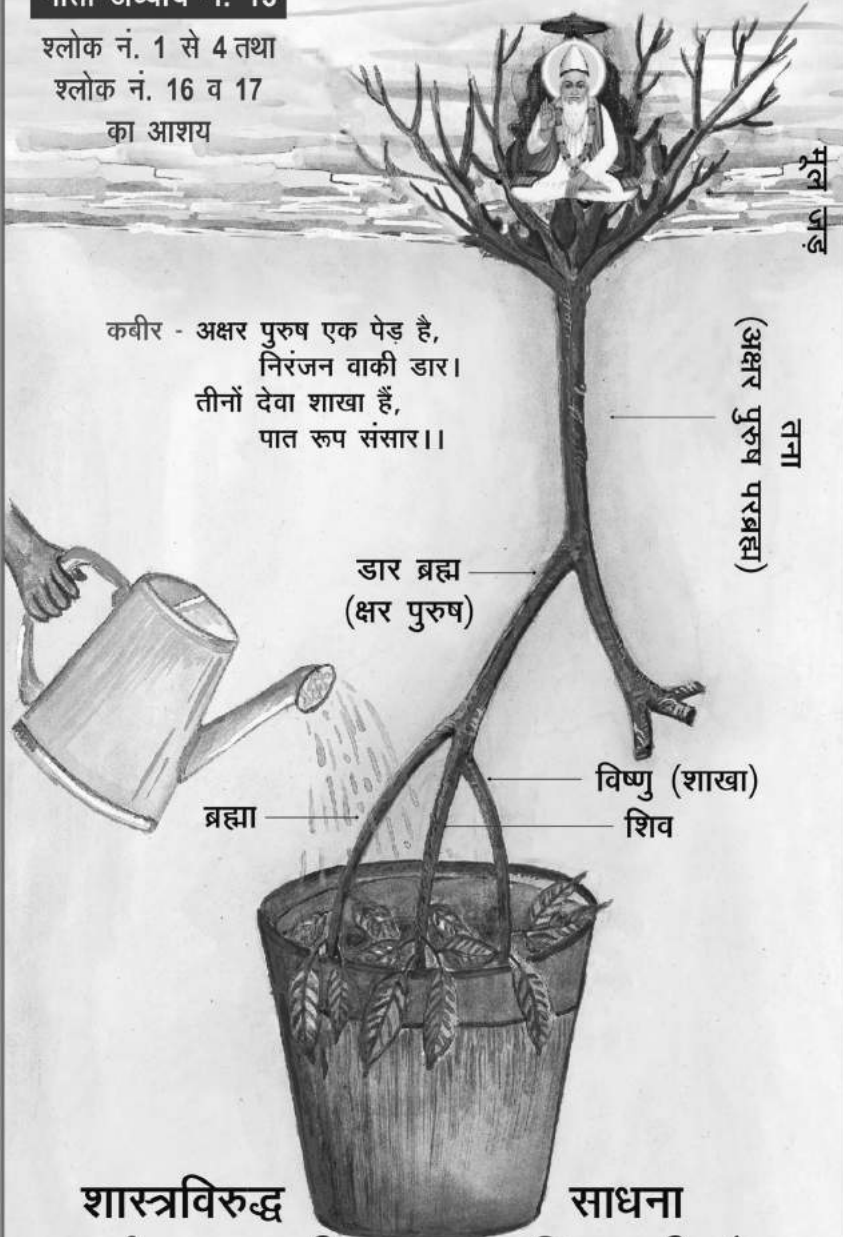 गीता अध्याय नं. 15
श्लोक नं. 1 से 4 तथा
श्लोक नं. 16 व 17
का आशय
मूल जड़
कबीर - अक्षर पुरुष एक पेड़ है,
निरंजन वाकी डार।
तीनों देवा शाखा हैं,
पात रूप संसार।।
तना
(अक्षर पुरुष परब्रह्म)
डार ब्रह्म
(क्षर पुरुष)
विष्णु (शाखा)
ब्रह्मा
शिव
शास्त्रविरुद्ध साधना